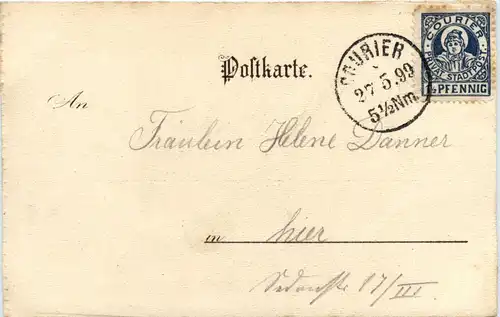 Postkarte.
COURIER
27 5.99
5½Nm.
COURIER
PRIVAT STADTPOST
½ PFENNIG
An
Fräulein Helene Danner
in hier
17/III